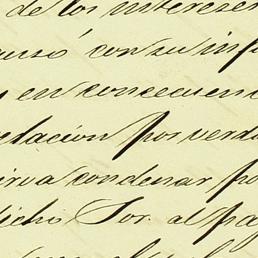 de los interese
causó con su inf
y en consecuenc
relacion por verda
sirva condenar po
dicho Sor. al pag